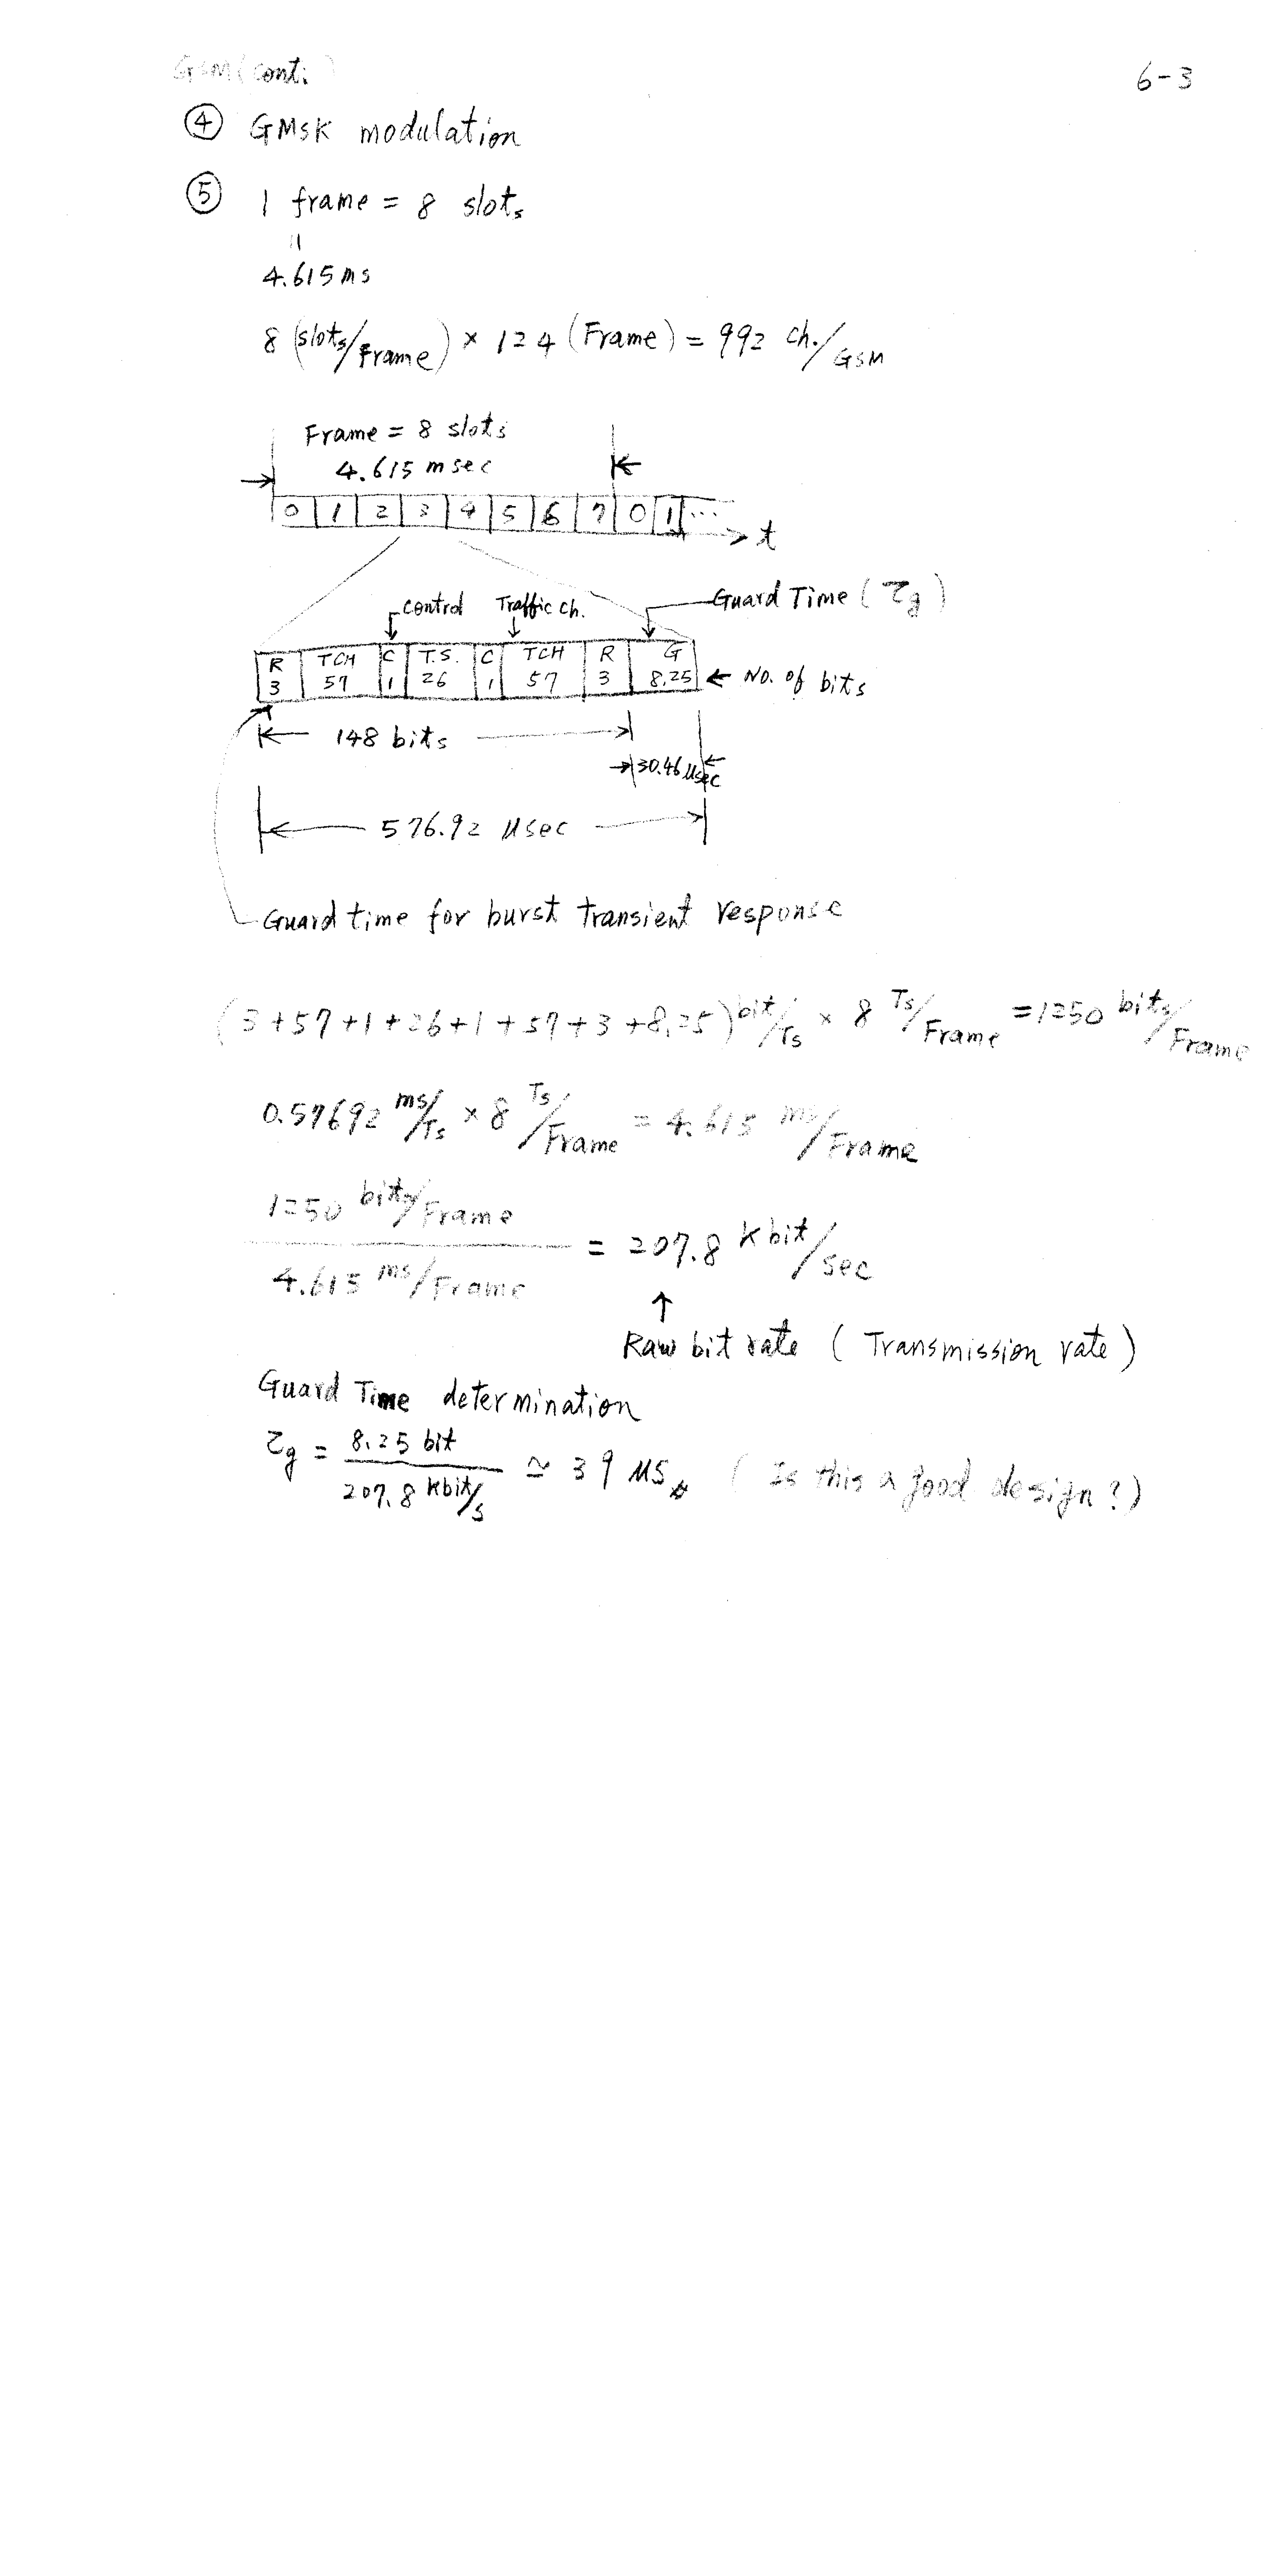 GSM (cont.)
6-3
④ GMSK modulation
⑤ 1 frame = 8 slots
=
4.615 ms
8 (slots/Frame) × 124 (Frame) = 992 ch./GSM
Frame = 8 slots
4.615 msec
0 1 2 3 4 5 6 7 0 1 ...
t
Control Traffic ch. Guard Time (τg)
R TCH C T.S. C TCH R G
3 57 1 26 1 57 3 8.25 ← No. of bits
148 bits
30.46 μsec
576.92 μsec
Guard time for burst transient response
(3+57+1+26+1+57+3+8.25) bit/Ts × 8 Ts/Frame = 1250 bits/Frame
0.57692 ms/Ts × 8 Ts/Frame = 4.615 ms/Frame
1250 bits/Frame
4.615 ms/Frame
= 207.8 Kbit/sec
↑
Raw bit rate (Transmission rate)
Guard Time determination
τg = 8.25 bit / 207.8 kbit/s ≃ 39 μs (Is this a good design?)